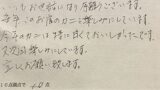 いつもお世話になり有難うございます。
毎年このお店のカニを楽しみにしています。
今年のカニは特に甘くておいしかったです。
又次回も楽しみにしています。
宜しくお願い致します。